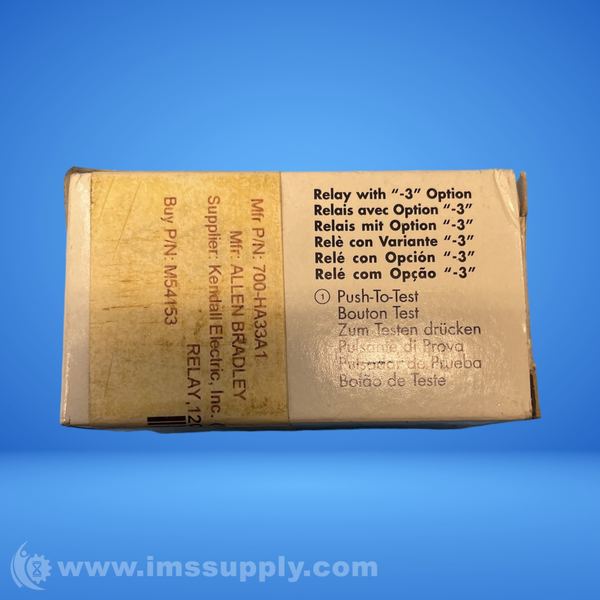 Mfr P/N: 700-HA33A1
Mfr: ALLEN BRADLEY
Supplier: Kendall Electric, Inc. (
RELAY,12
Buy P/N: M54153
Relay with “-3” Option
Relais avec Option “-3”
Relais mit Option “-3”
Relè con Variante “-3”
Relé con Opción “-3”
Relé com Opção “-3”
1 Push-To-Test
Bouton Test
Zum Testen drücken
Pulsante di Prova
Pulsador de Prueba
Botão de Teste
www.imssupply.com